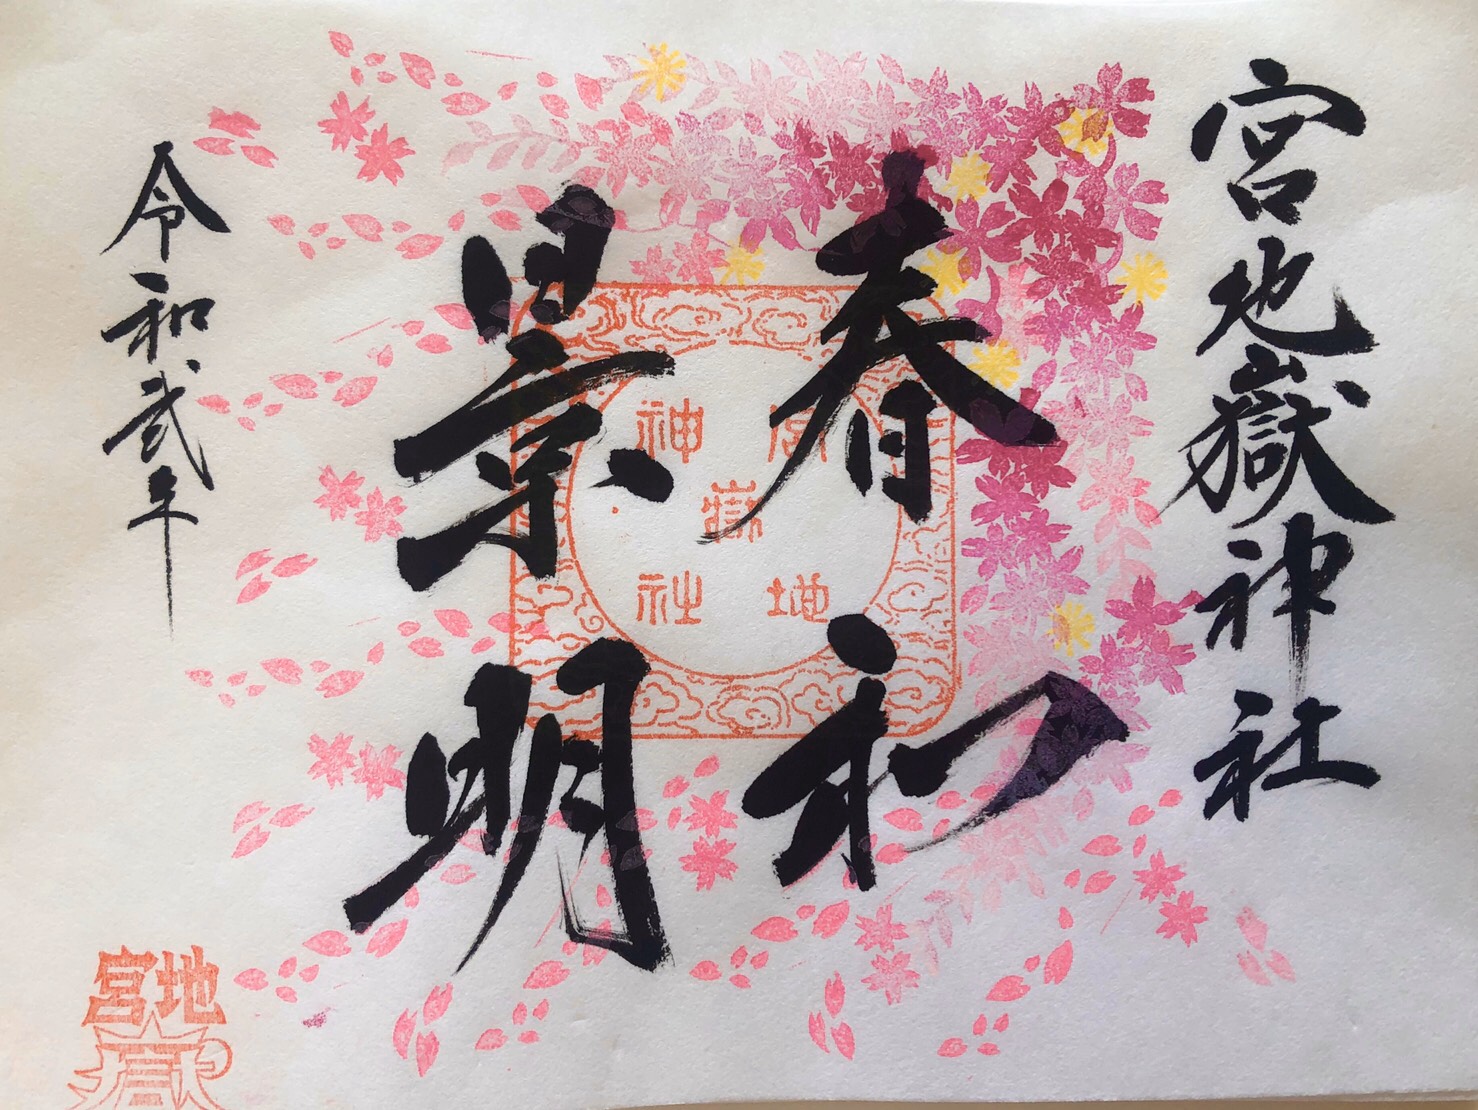 宮地嶽神社
春和
景明
令和弐年
宮地
嶽
神
社
宮地
嶽